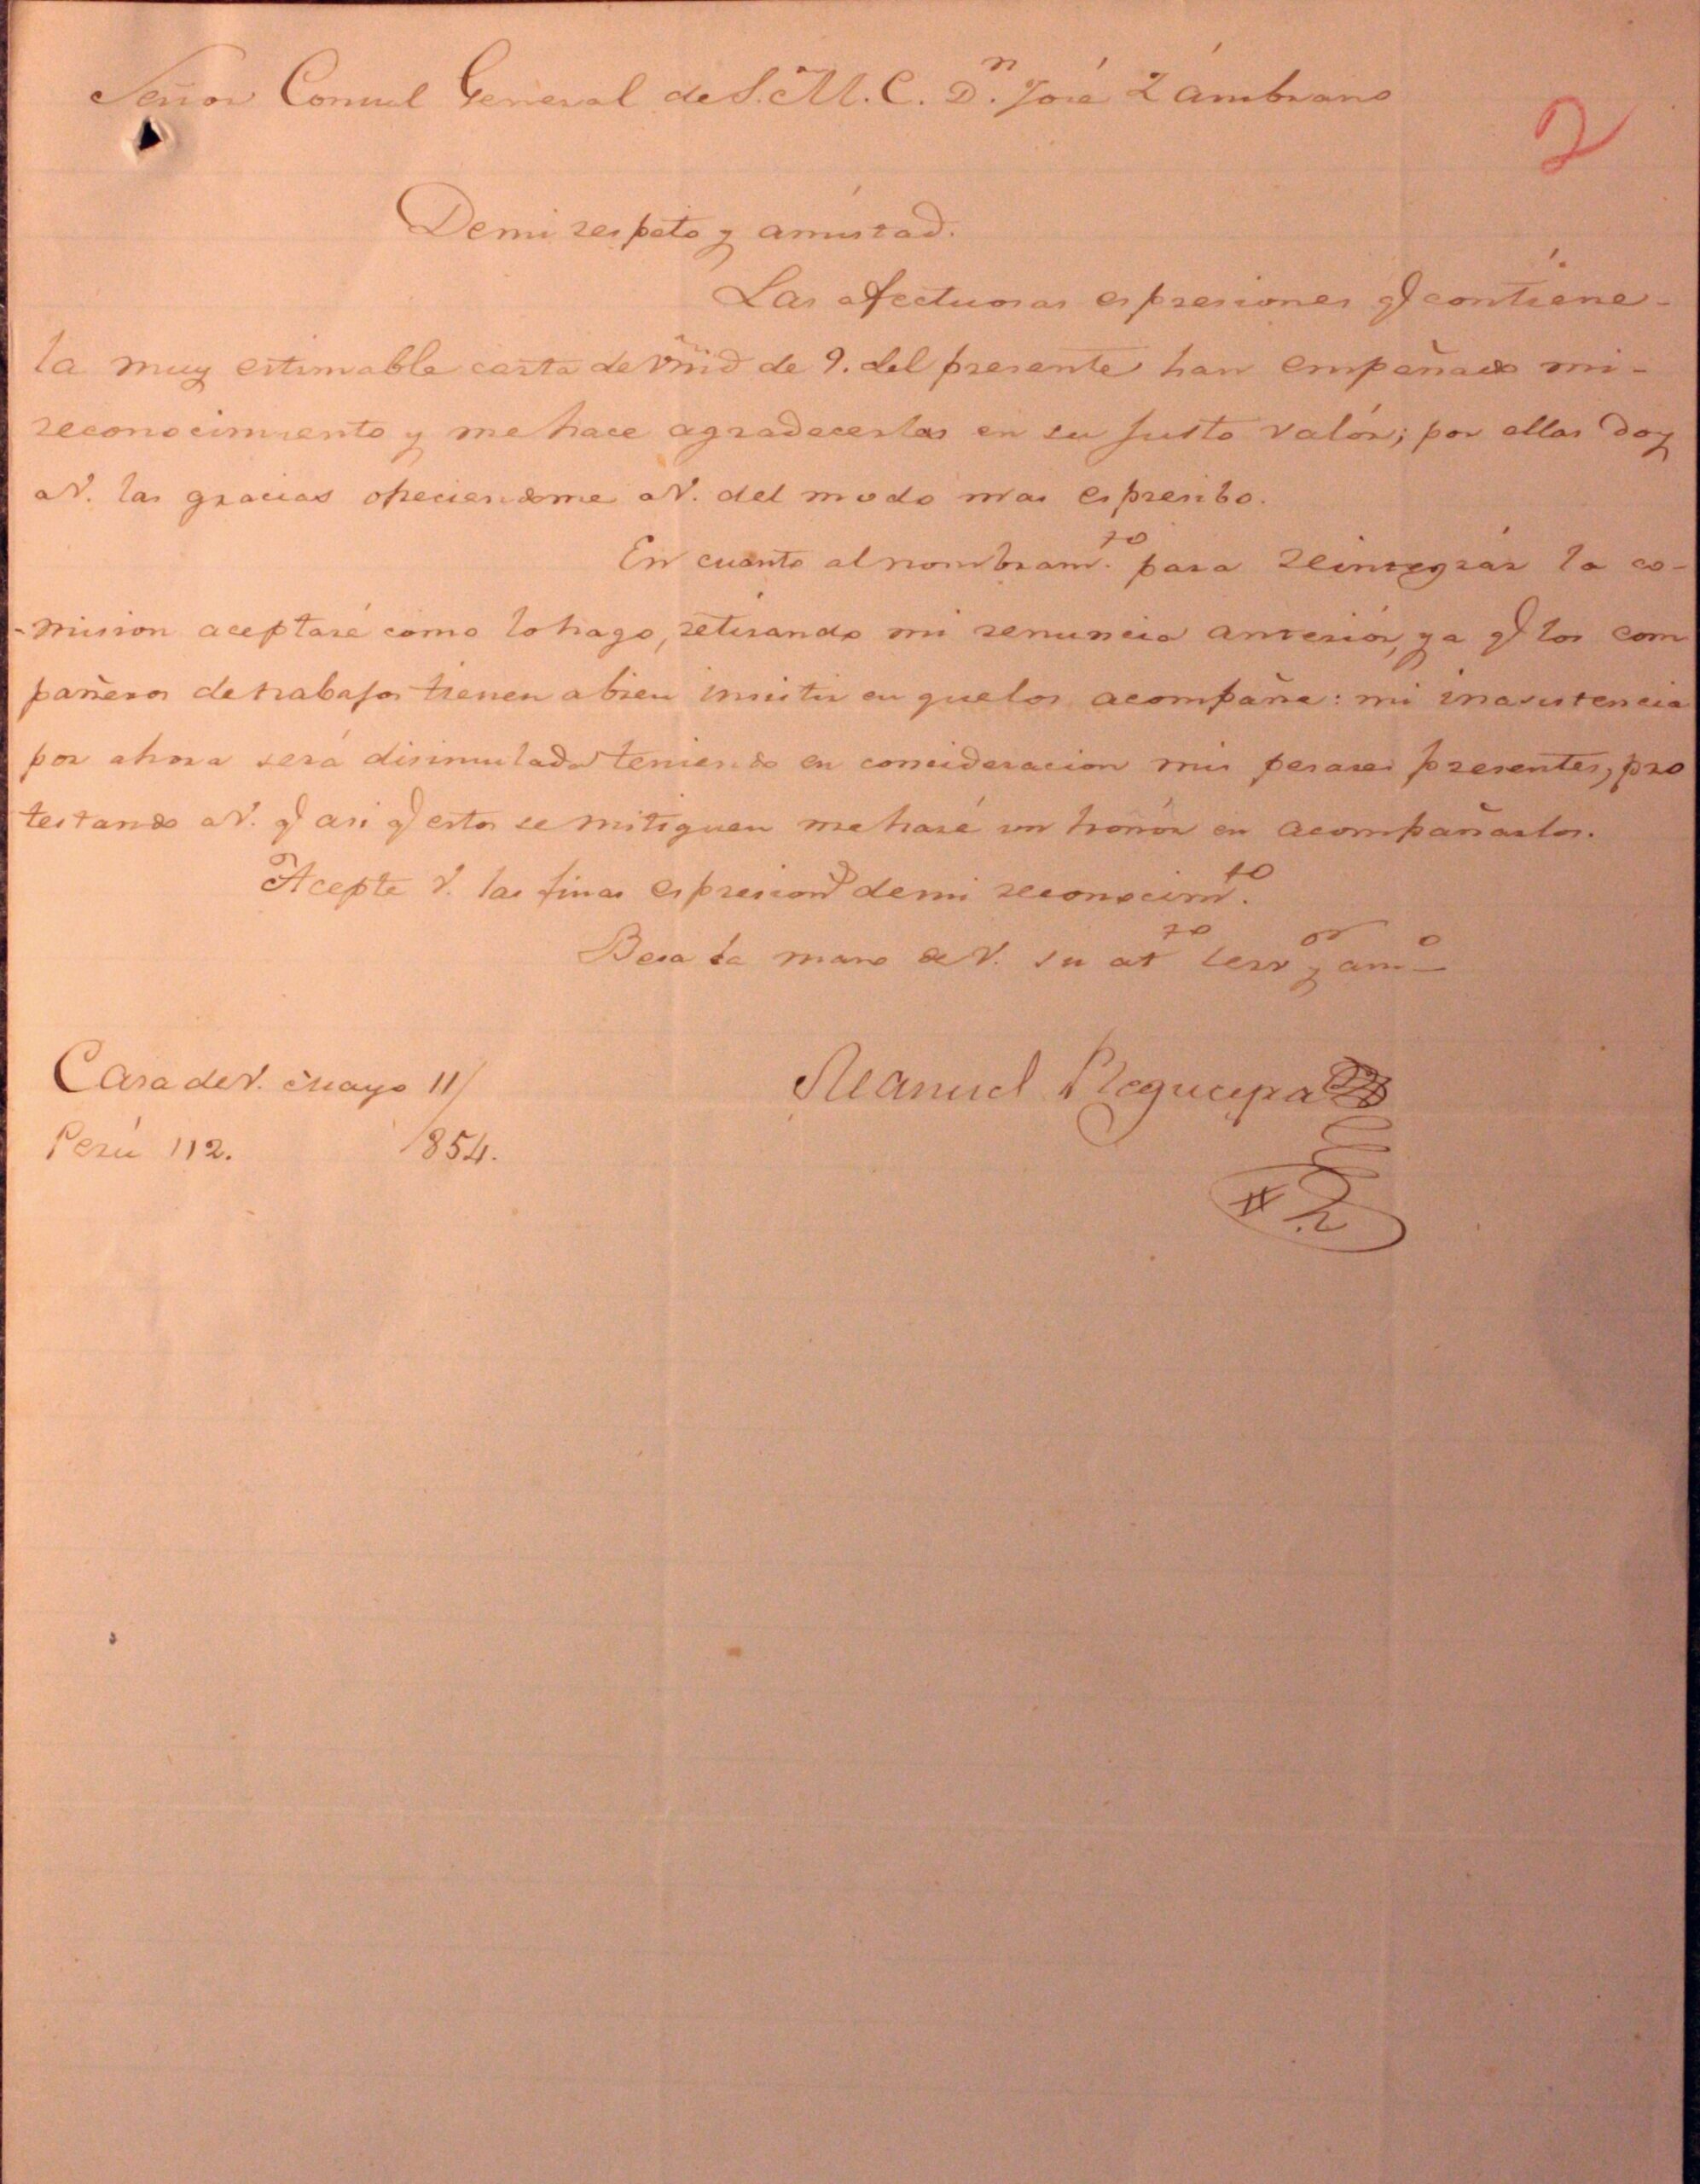 Señor Consul General de S. M. C. Dn. José Zámbrano
2
De mi respeto y amistad.
Las afectuosas espresiones q contiene-
la muy estimable carta de de 9. del presente han empeñado mi-
reconocimiento y me hace agradecerlas en su justo valór; por ellas doy
a V. las gracias ofreciendome a V. del modo mas espresibo.
En cuanto al nombram.to para reintegrár la co-
-mision aceptaré como lo hago, retirando mi renuncia anteriór, ya q los com
pañeros de trabajos tienen a bien insistir en que los acompañe: mi inasistencia
por ahora será disimulada teniendo en concideracion mis pesares presentes, pro
testando a V. q asi q estos se mitiguen me hará un honór en acompañarlos.
Acepte V. las finas espresions de mi reconocim.to
Besa la mano de V. su at.to serv.or y am.o
Casa de V. Mayo 11/
Perú 112. 854.
Manuel